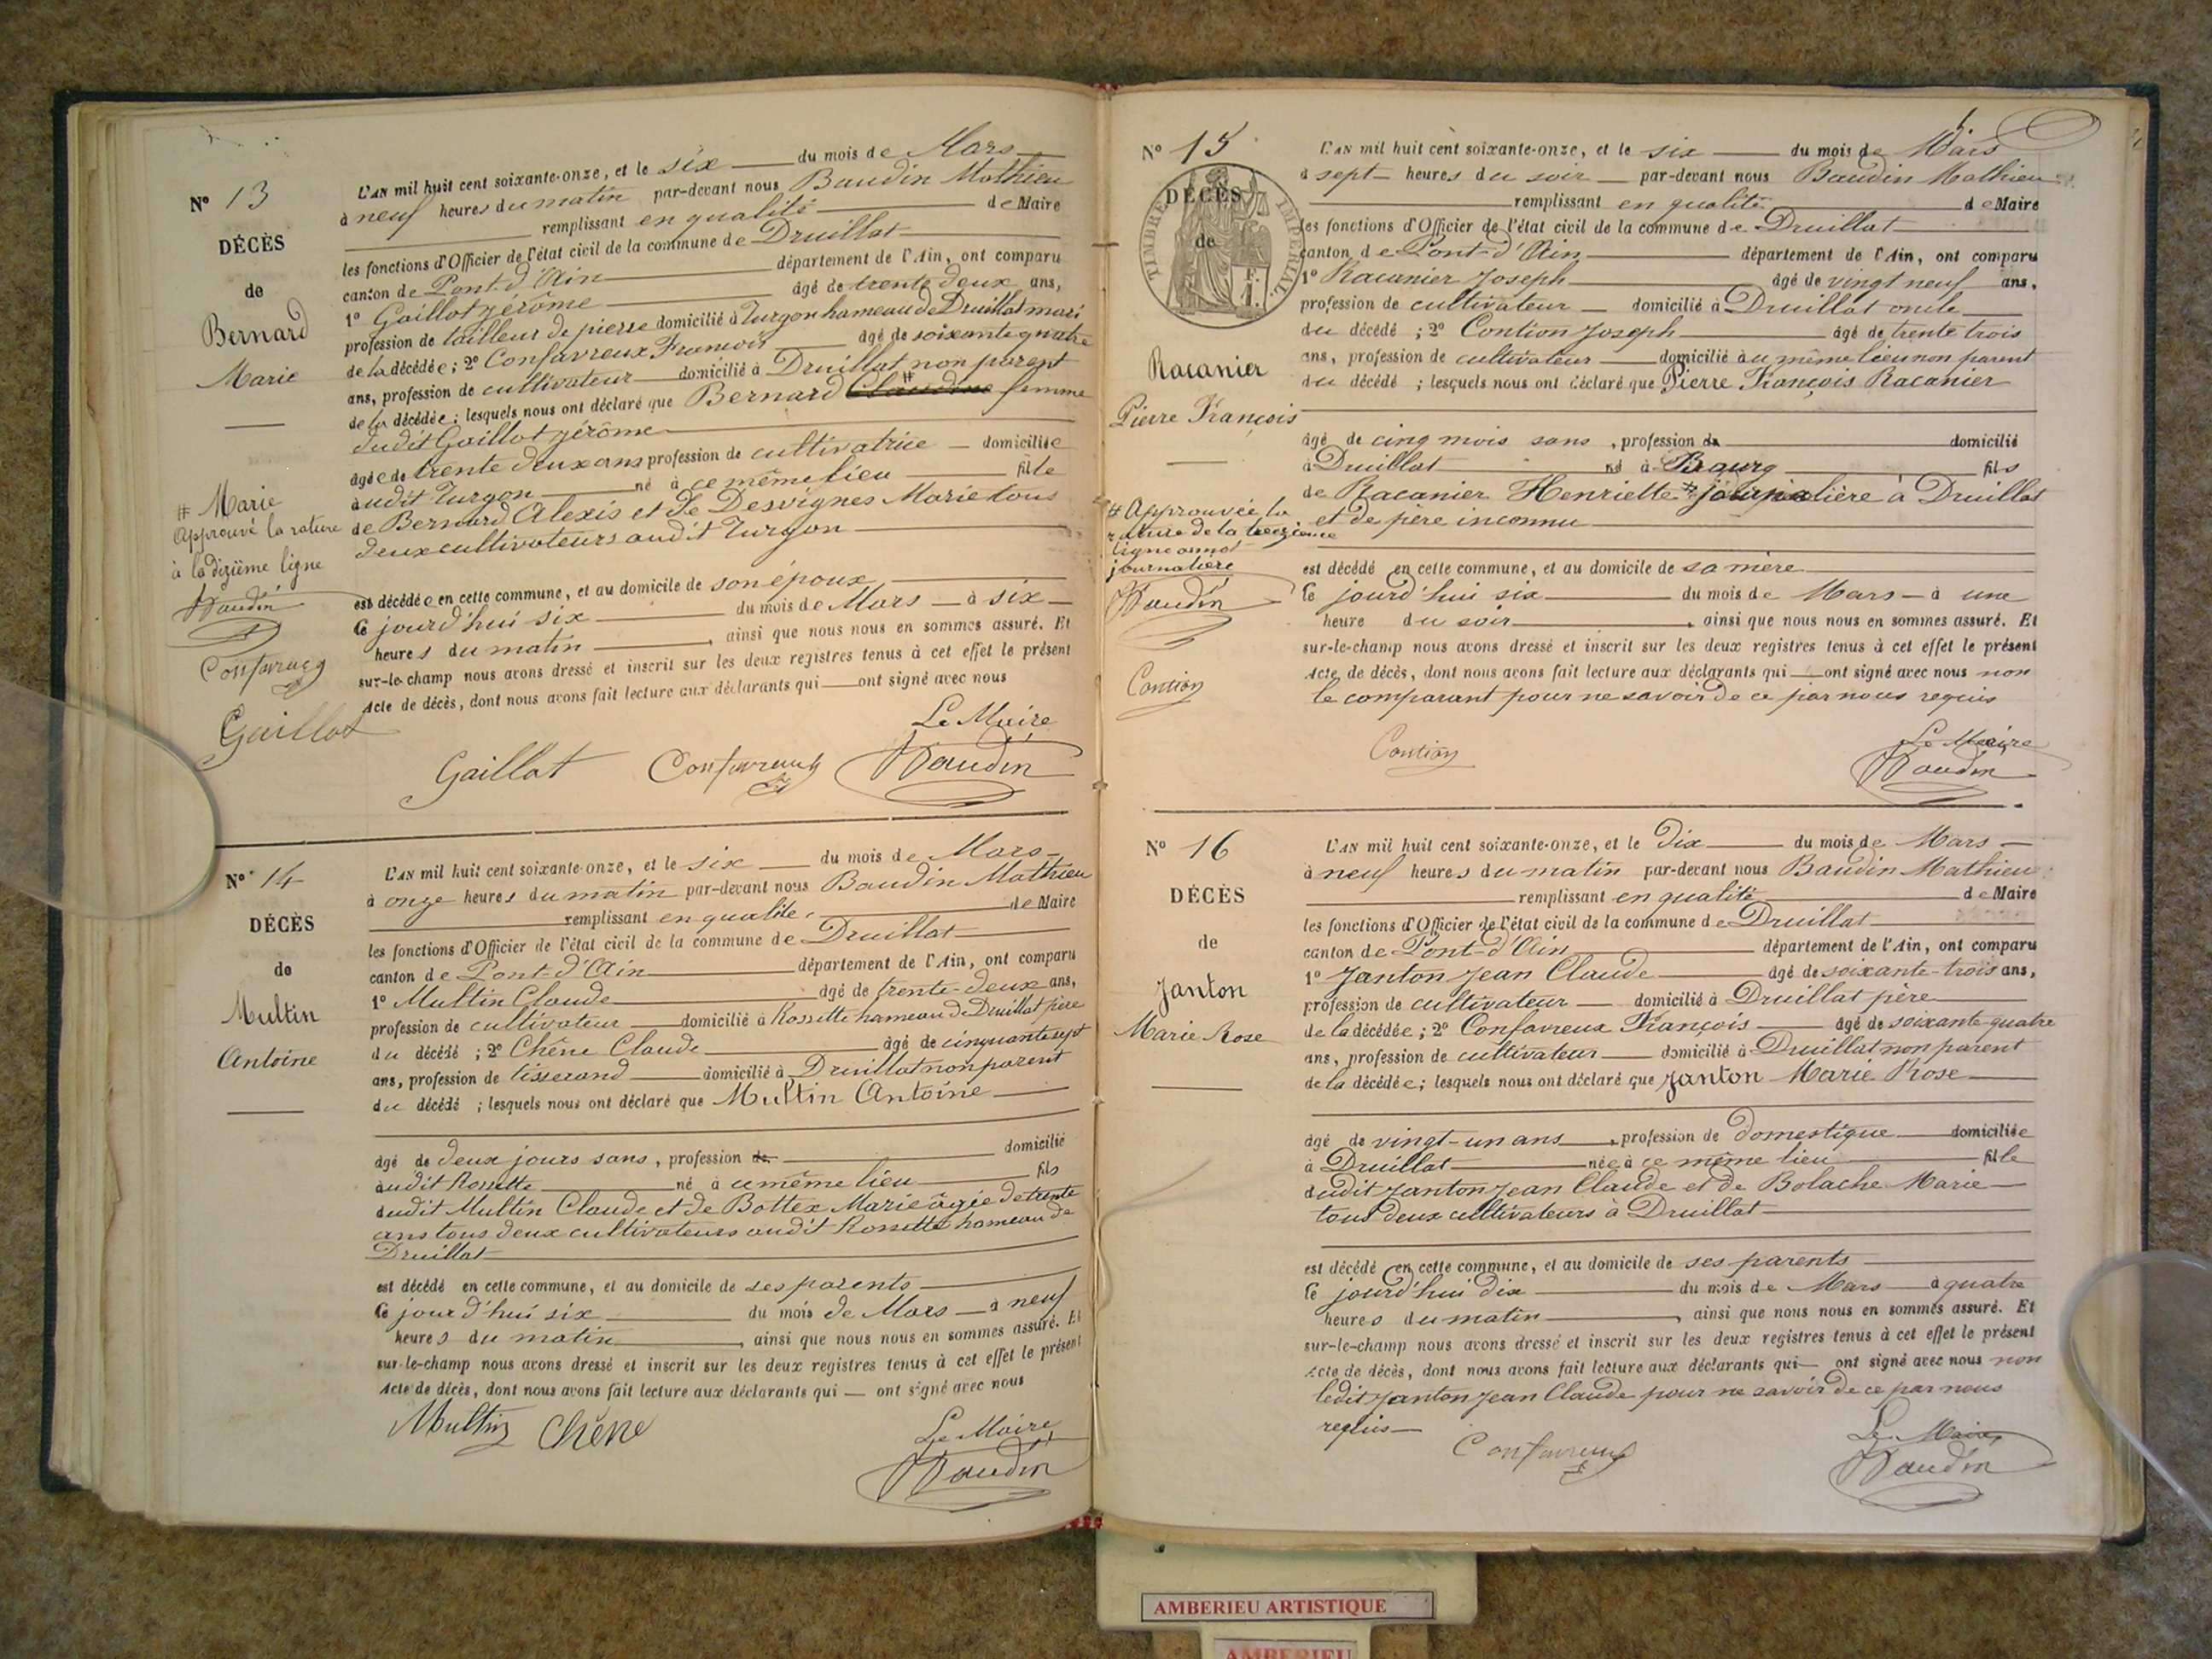 N° 13
DÉCÈS
de
Bernard
Marie
# Marie
Approuvé la rature
à la dizième ligne
Baudin
Confavreux
Gaillot
L'AN mil huit cent soixante-onze, et le six du mois de Mars
à neuf heures du matin par-devant nous Baudin Mathieu
remplissant en qualité de Maire
les fonctions d'Officier de l'état civil de la commune de Druillat
canton de Pont-d'Ain département de l'Ain, ont comparu
1° Gaillot Jérôme âgé de trente deux ans,
profession de tailleur de pierre domicilié à Turgon hameau de Druillat mari
de la décédée ; 2° Confavreux François âgé de soixante quatre
ans, profession de cultivateur domicilié à Druillat non parent
de la décédée ; lesquels nous ont déclaré que Bernard # femme
dudit Gaillot Jérôme
âgée de trente deux ans profession de cultivatrice domiciliée
audit Turgon né à ce même lieu fille
de Bernard Alexis et de Desvignes Marie tous
deux cultivateurs audit Turgon
est décédée en cette commune, et au domicile de son époux
le jourd'hui six du mois de Mars à six
heures du matin, ainsi que nous nous en sommes assuré. Et
sur-le-champ nous avons dressé et inscrit sur les deux registres tenus à cet effet le présent
acte de décès, dont nous avons fait lecture aux déclarants qui ont signé avec nous
Le Maire
Gaillot Confavreux Baudin
N° 14
DÉCÈS
de
Multin
Antoine
L'AN mil huit cent soixante-onze, et le six du mois de Mars
à onze heures du matin par-devant nous Baudin Mathieu
remplissant en qualité de Maire
les fonctions d'Officier de l'état civil de la commune de Druillat
canton de Pont-d'Ain département de l'Ain, ont comparu
1° Multin Claude âgé de trente-deux ans,
profession de cultivateur domicilié à Rossette hameau de Druillat père
du décédé ; 2° Chêne Claude âgé de cinquante sept
ans, profession de tisserand domicilié à Druillat non parent
du décédé ; lesquels nous ont déclaré que Multin Antoine
âgé de deux jours sans, profession de domicilié
audit Rossette né à ce même lieu fils
dudit Multin Claude et de Bottex Marie âgée de trente
ans tous deux cultivateurs audit Rossette hameau de
Druillat
est décédé en cette commune, et au domicile de ses parents
le jourd'hui six du mois de Mars à neuf
heures du matin, ainsi que nous nous en sommes assuré. Et
sur-le-champ nous avons dressé et inscrit sur les deux registres tenus à cet effet le présent
acte de décès, dont nous avons fait lecture aux déclarants qui ont signé avec nous
Multin Chêne Le Maire
Baudin
N° 15
TIMBRE IMPERIAL
DÉCÈS
de
Racanier
Pierre François
# Approuvée la
rature de la treizième
ligne au mot
journalière
Baudin
Contion
L'AN mil huit cent soixante-onze, et le six du mois de Mars
à sept heures du soir par-devant nous Baudin Mathieu
remplissant en qualité de Maire
les fonctions d'Officier de l'état civil de la commune de Druillat
canton de Pont-d'Ain département de l'Ain, ont comparu
1° Racanier Joseph âgé de vingt neuf ans,
profession de cultivateur domicilié à Druillat oncle
du décédé ; 2° Contion Joseph âgé de trente trois
ans, profession de cultivateur domicilié au même lieu non parent
du décédé ; lesquels nous ont déclaré que Pierre François Racanier
âgé de cinq mois sans, profession de domicilié
à Druillat né à Bourg fils
de Racanier Henriette # journalière à Druillat
et de père inconnu
est décédé en cette commune, et au domicile de sa mère
le jourd'hui six du mois de Mars à une
heure du soir, ainsi que nous nous en sommes assuré. Et
sur-le-champ nous avons dressé et inscrit sur les deux registres tenus à cet effet le présent
acte de décès, dont nous avons fait lecture aux déclarants qui ont signé avec nous non
le comparant pour ne savoir de ce par nous requis
Contion Le Maire
Baudin
N° 16
DÉCÈS
de
Janton
Marie Rose
L'AN mil huit cent soixante-onze, et le Dix du mois de Mars
à neuf heures du matin par-devant nous Baudin Mathieu
remplissant en qualité de Maire
les fonctions d'Officier de l'état civil de la commune de Druillat
canton de Pont-d'Ain département de l'Ain, ont comparu
1° Janton Jean Claude âgé de soixante-trois ans,
profession de cultivateur domicilié à Druillat père
de la décédée ; 2° Confavreux François âgé de soixante-quatre
ans, profession de cultivateur domicilié à Druillat non parent
de la décédée ; lesquels nous ont déclaré que Janton Marie Rose
âgé de vingt-un ans, profession de Domestique domiciliée
à Druillat née à ce même lieu fille
dudit Janton Jean Claude et de Bolache Marie
tous deux cultivateurs à Druillat
est décédé en cette commune, et au domicile de ses parents
le jourd'hui dix du mois de Mars à quatre
heures du matin, ainsi que nous nous en sommes assuré. Et
sur-le-champ nous avons dressé et inscrit sur les deux registres tenus à cet effet le présent
acte de décès, dont nous avons fait lecture aux déclarants qui ont signé avec nous non
ledit Janton Jean Claude pour ne savoir de ce par nous
requis
Confavreux Le Maire
Baudin
AMBERIEU ARTISTIQUE
AMBERIEU